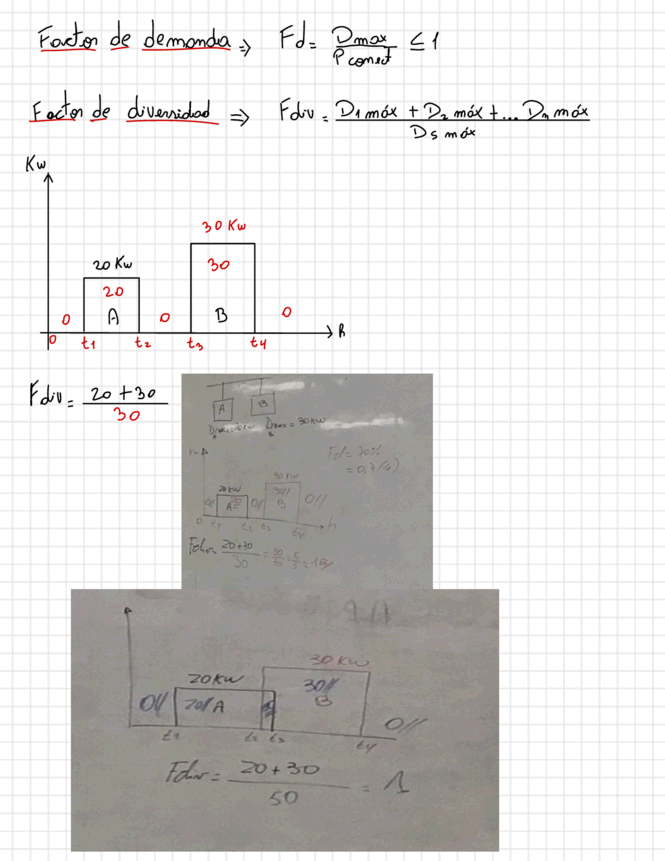 Factor de demanda => Fd = Dmax / Pconect ≤ 1
Factor de diversidad => Fdiv = D1 máx + D2 máx + ... Dn máx / Ds máx
Kw
30 Kw
20 Kw
30
20
0 A 0 B 0
0 t1 t2 t3 t4 h
Fdiv = 20 + 30 / 30
A B
Dmax = 30 KW
Fd = 70%
= 0,7
30 KW
20 KW
30//
0// A 0// B 0//
0 t1 t2 t3 t4 h
Fdiv = 20+30 / 30
30 KW
20 KW
30//
0// 20// A B
0//
t1 t2 t3 t4
Fdiv = 20 + 30 / 50 = 1